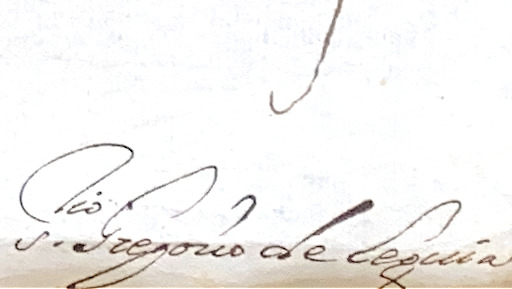 Pio
S. Gregorio de Lequia